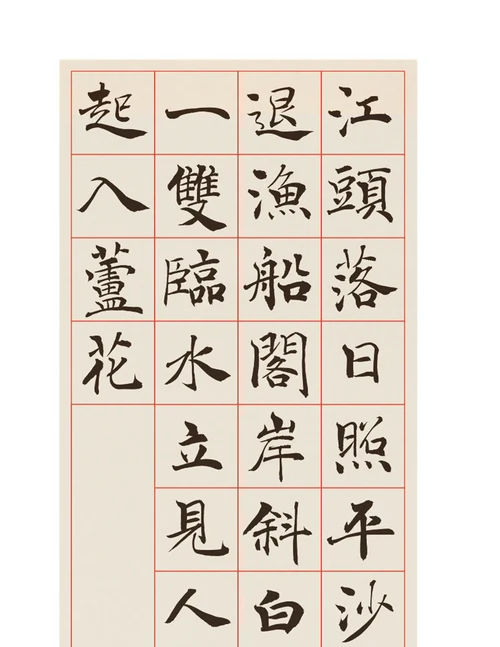 江頭落日照平沙
退漁船閣岸斜白
一雙臨水立見人
起入蘆花